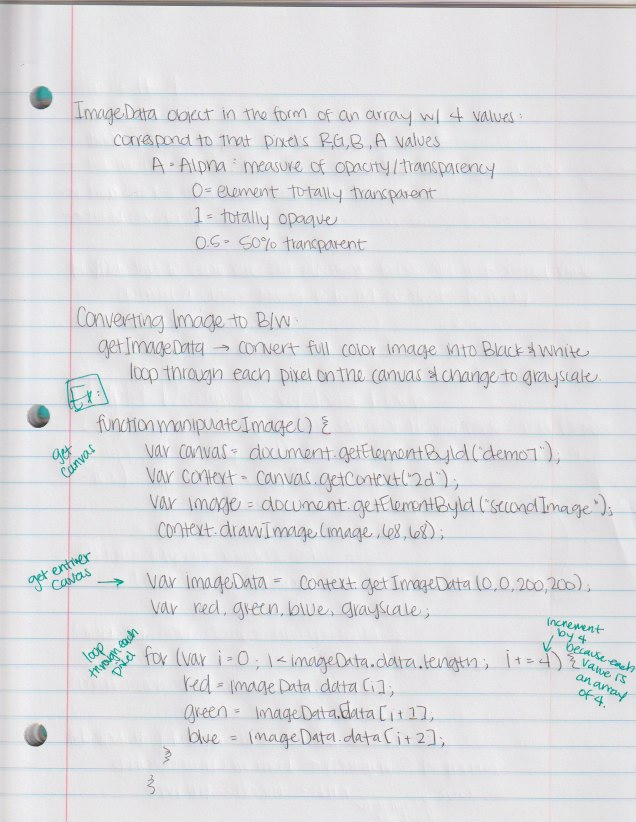 ImageData object in the form of an array w/ 4 values:
correspond to that pixels R,G,B,A values
A = Alpha: measure of opacity/transparency
0 = element totally transparent
1 = totally opaque
0.5 = 50% transparent
Converting Image to B/W:
getImageData → convert full color image into Black & White
loop through each pixel on the canvas & change to grayscale
Ex:
function manipuateImage() {
get canvas
var canvas = document.getElementById("demo7");
var context = canvas.getContext("2d");
var image = document.getElementById("secondImage");
context.drawImage(image, 68, 68);
get entirer canvas →
var imageData = context.getImageData(0,0,200,200);
var red, green, blue, grayscale;
increment by 4 because each value is an array of 4.
loop through each pixel
for (var i=0; i<imageData.data.length; i+=4) {
red = imageData.data[i];
green = imageData.data[i+1];
blue = imageData.data[i+2];
}
}